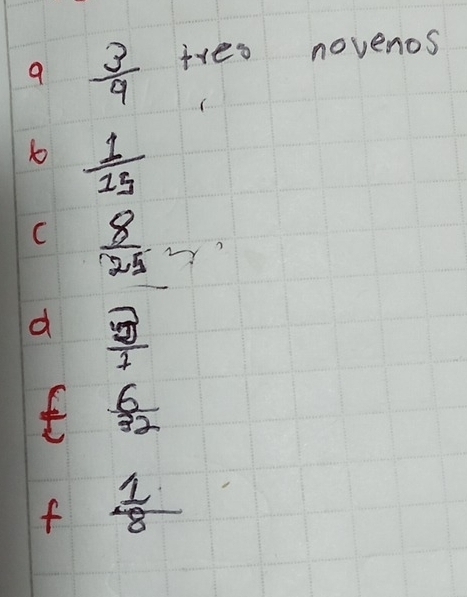 a 3/9 tres novenos
b 1/15
c 8/25
d 5/7
6/32
f 1/8